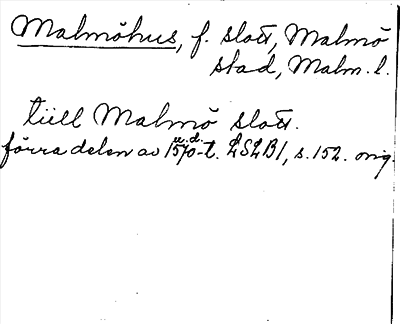 Malmöhus, f. slott, Malmö
stad, Malm. l.
tiill Malmö slott.
u.d.
förra delen av 1570-t. LSLB1, s. 152. orig.